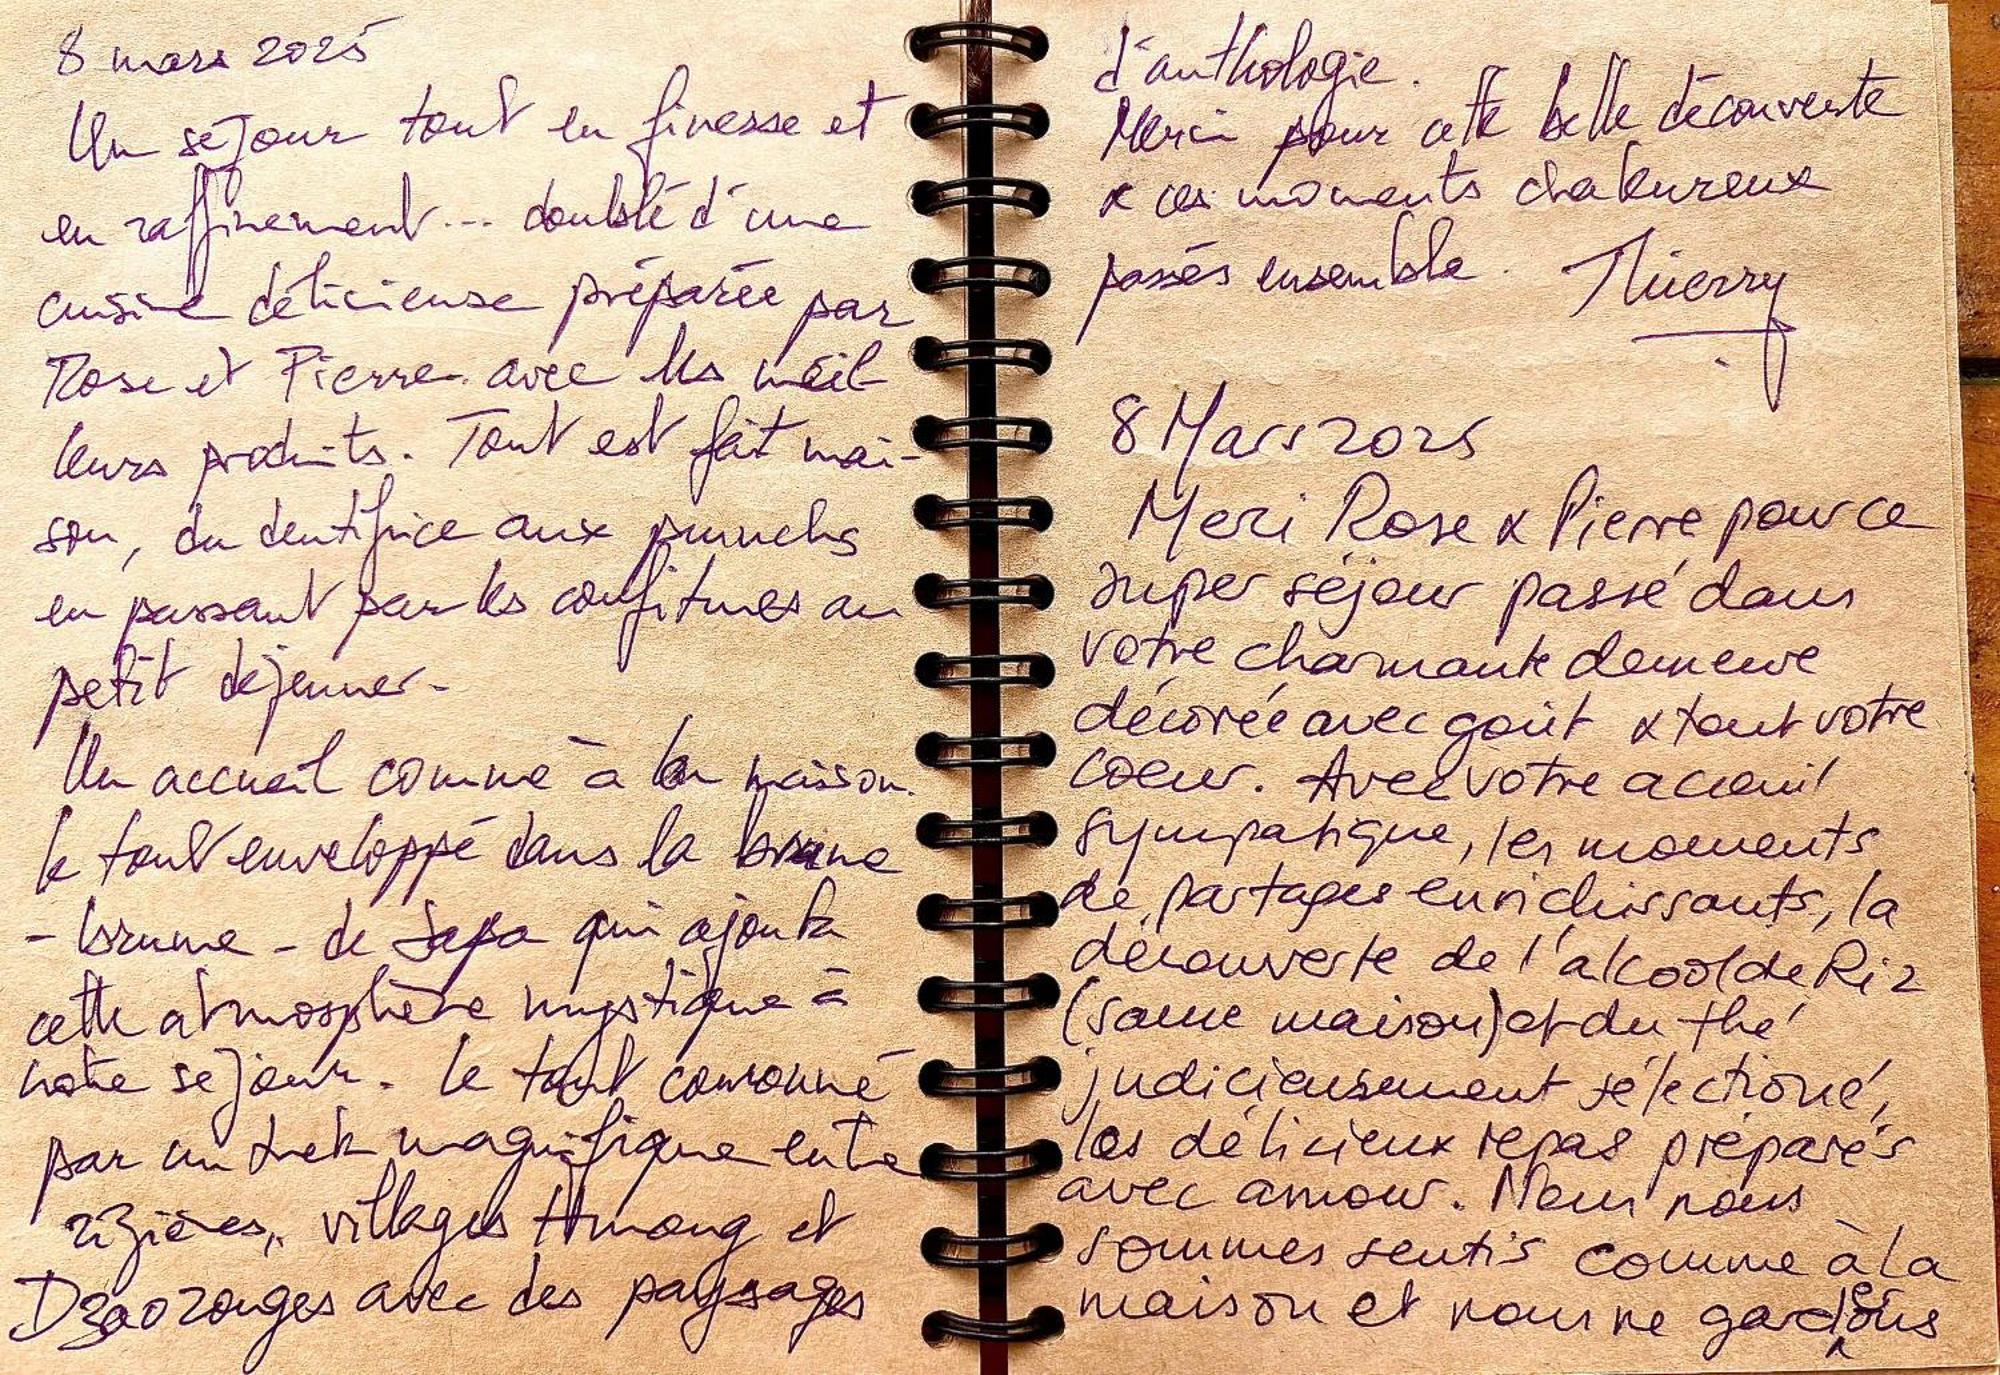 8 mars 2025
Un séjour tout en finesse et
en raffinement... doublé d'une
cuisine délicieuse préparée par
Rose et Pierre avec les meil-
leurs produits. Tout est fait mai-
son, du dentifrice aux punchs
en passant par les confitures au
petit déjeuner.
Un accueil comme à la maison.
le tout enveloppé dans la brume
- brume - de Sapa qui ajouta
cette atmosphère mystique à
notre séjour. Le tout couronné
par un trek magnifique entre
rizières, villages Hmong et
Dzao rouges avec des paysages
d'anthologie.
Merci pour cette belle découverte
& ces moments chaleureux
passés ensemble. Thierry
8 Mars 2025
Merci Rose & Pierre pour ce
super séjour passé dans
votre charmante demeure
décorée avec goût & tout votre
coeur. Avec votre acceuil
sympatique, les moments
de partages enrichissants, la
découverte de l'alcool de Riz
(saune maison) et du thé
judicieusement sélectioné,
les délicieux repas préparés
avec amour. Nous nous
sommes sentis comme à la
maison et nous ne garderons